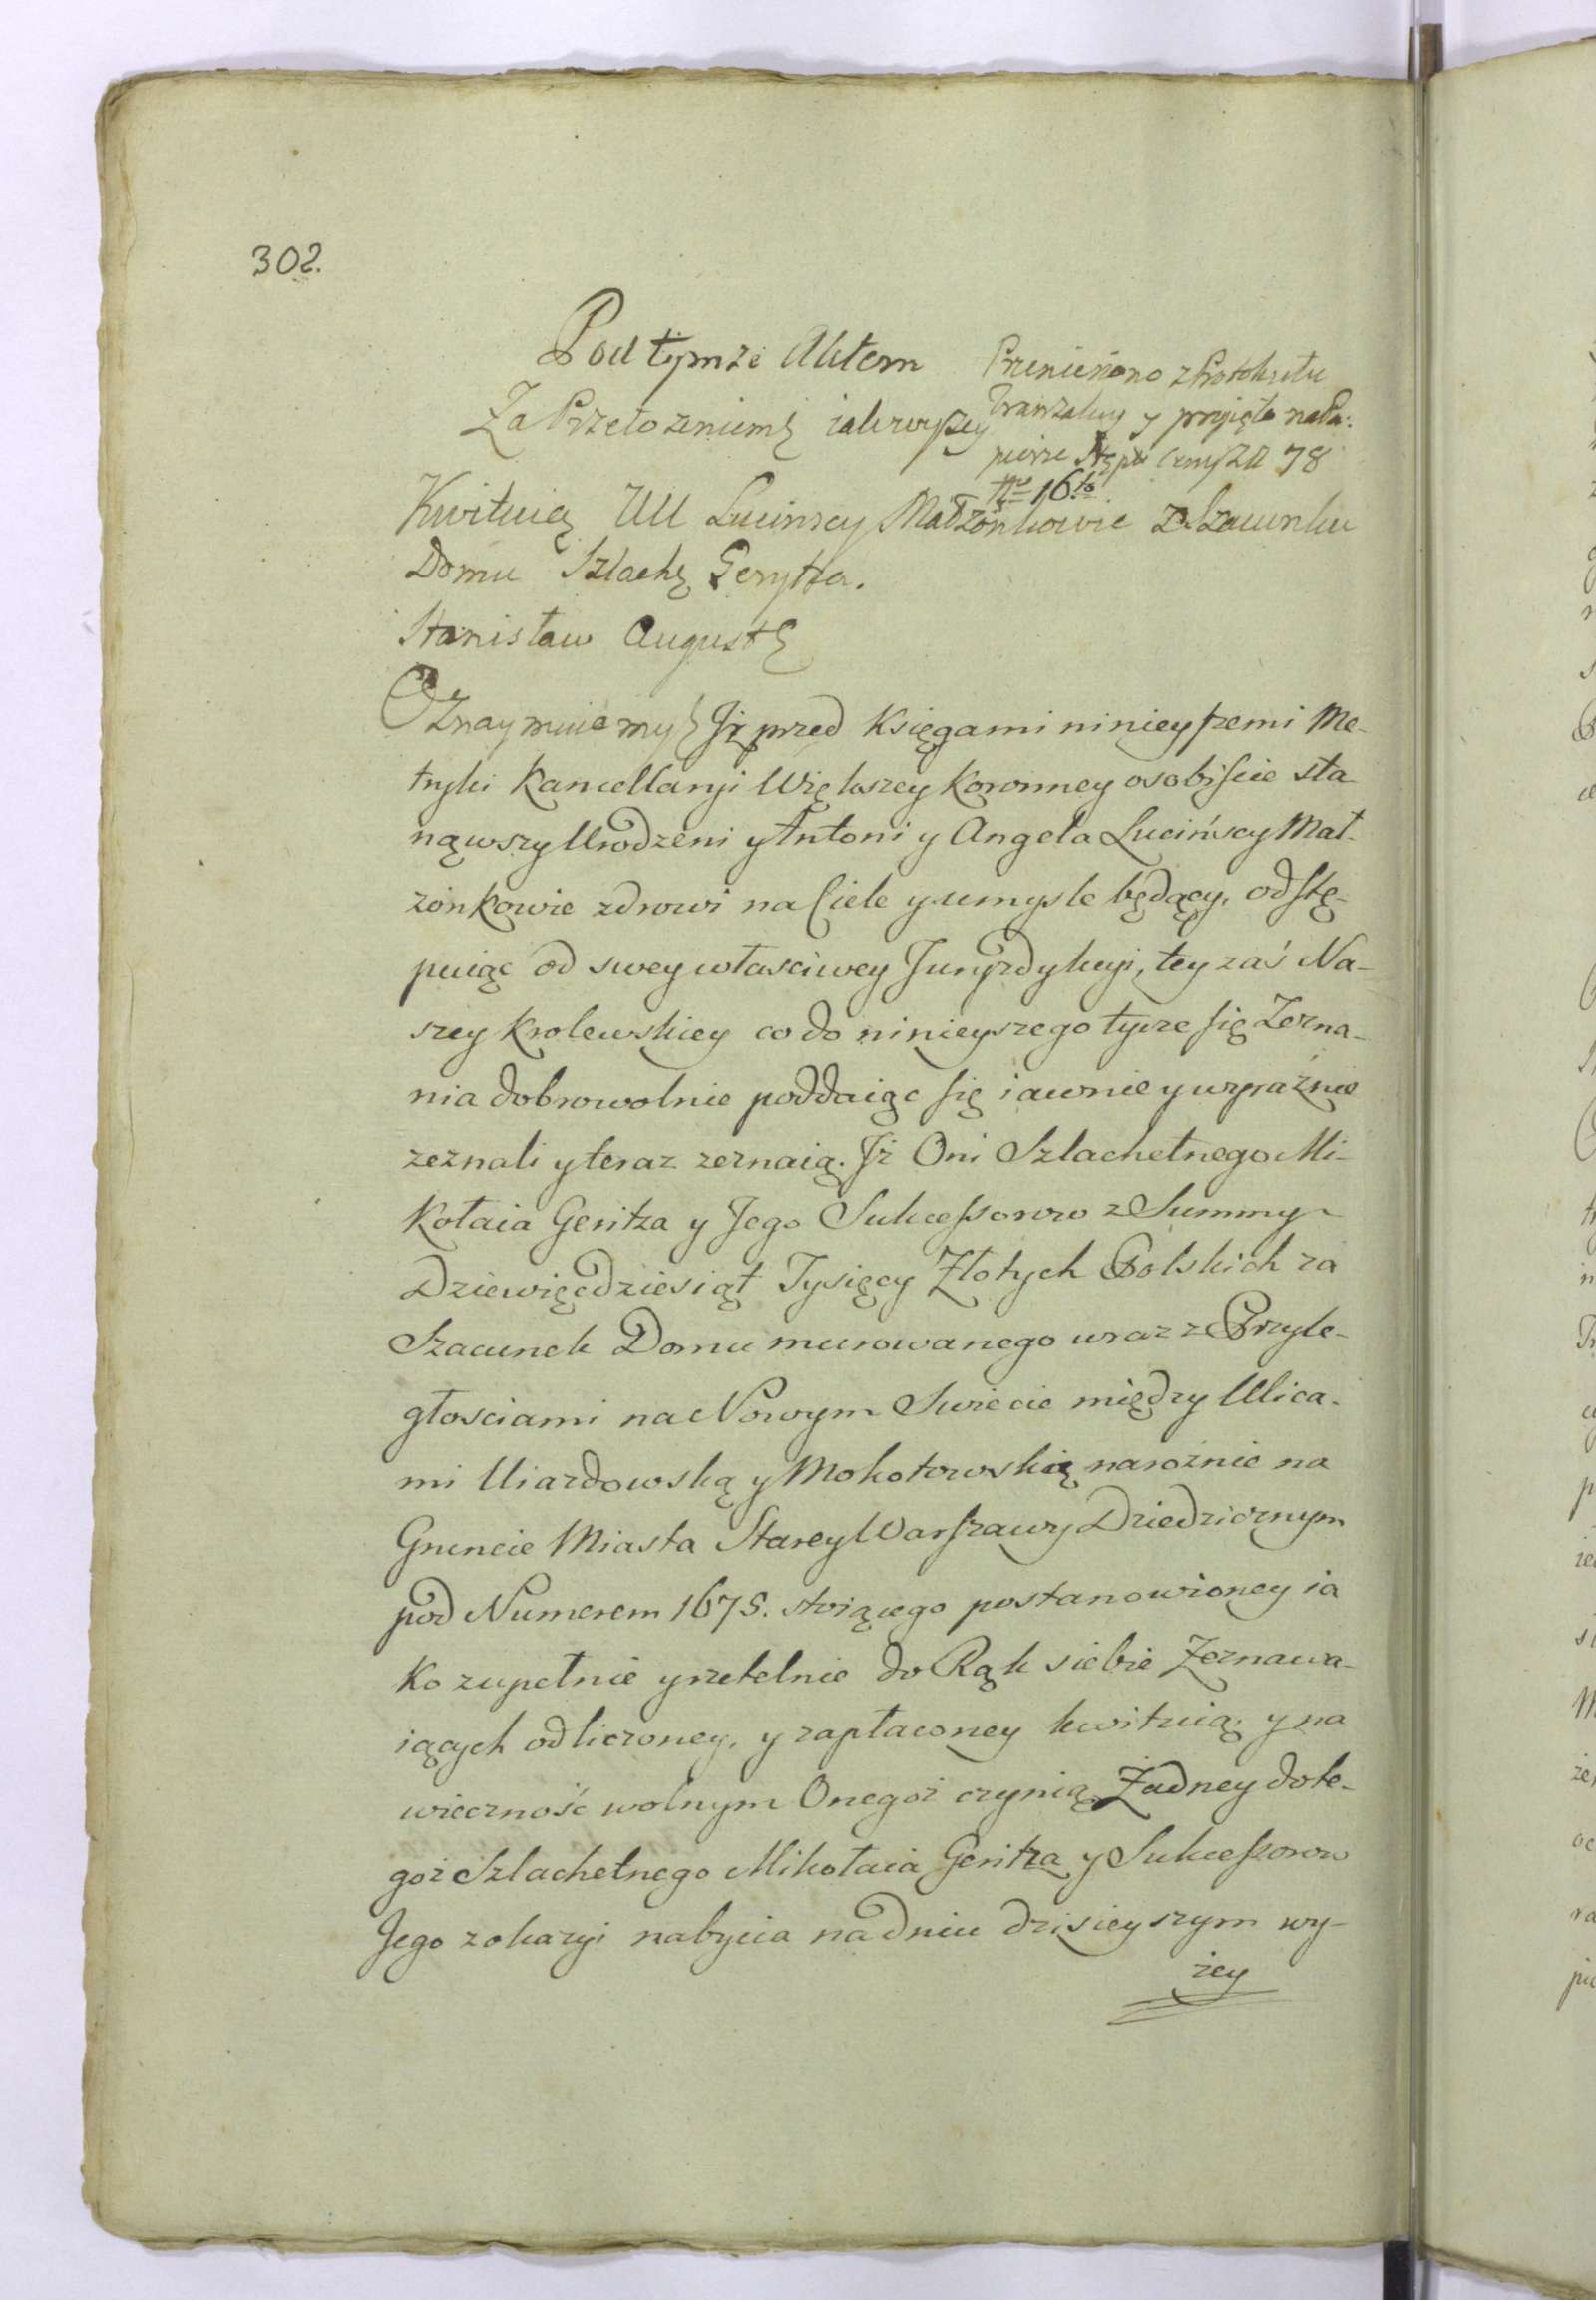 302.
Pod tymże Aktem
Za Przełożeniem iak wyżey
Przeniesiono z Protokułu
Tranzakcyi y przyięto na Pa:
pierze Stępl: Ceny Zł 78
Nro 16to.
Kwituią UU Lucinscy Małżonkowie z Szacunku
Domu Szlach: Gerytza.
Stanisław August
Oznaymuiemy Iż przed Księgami ninieyszemi Me-
tryki Kancellaryi Większey Koronney osobiście sta
nąwszy Urodzeni Antoni y Angela Lucińscy Mał-
żonkowie zdrowi na Ciele y umysle będący, odstę-
puiąc od swey własciwey Juryzdykcyi, tey zaś Na-
szey Krolewskiey co do ninieyszego tycze się Zezna-
nia dobrowolnie poddaiąc się iawnie y wyraźnie
zeznali y teraz zeznaią. Iż Oni Szlachetnego Mi-
kołaia Geritza y Jego Sukcessorow z Summy
Dziewięćdziesiąt Tysięcy Złotych Polskich za
Szacunek Domu murowanego wraz z Przyle-
głosciami na Nowym Swiecie między Ulica-
mi Uiazdowską y Mokotowską narożnie na
Gruncie Miasta Starey Warszawy Dziedzicznym
pod Numerem 1675. stoiącego postanowioney ia
ko zupełnie y rzetelnie do Rąk siebie Zeznawa-
iących odliczoney, y zapłaconey kwituią, y na
wieczność wolnym Onegoż czynią, Żadney do te-
goż Szlachetnego Mikołaia Geritza y Sukcessorow
Jego z okazyi nabycia na dniu dzisieyszym wy-
żey